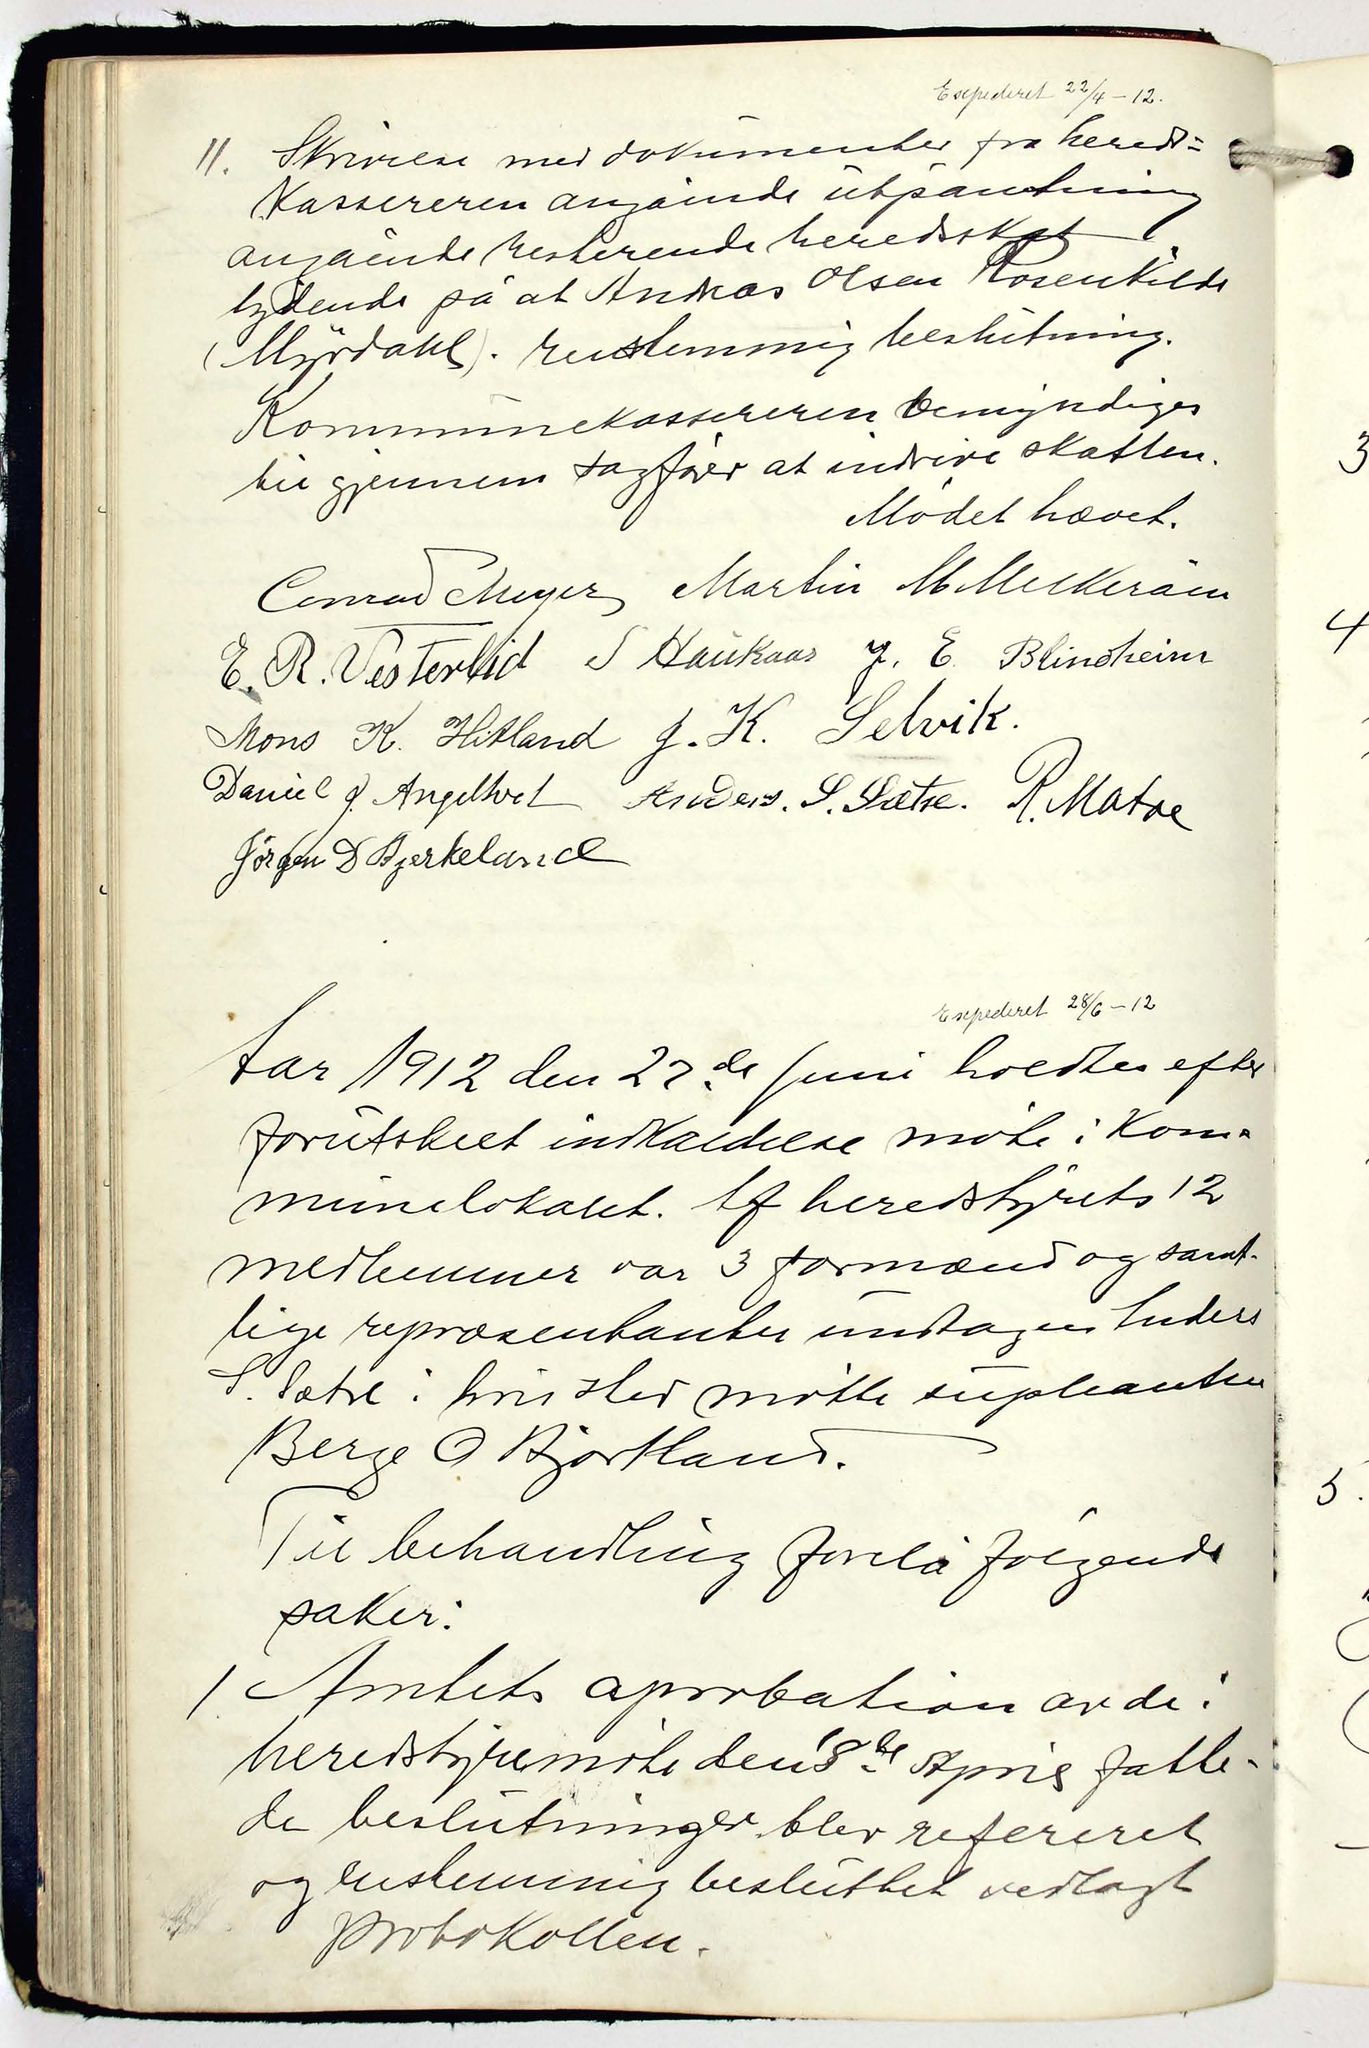 Expederet 22/4 - 12.
11. Skrivelse med dokumenter fra hereds=
kassereren angående utpantning
angående resterende heredsskat
lydende på at Andreas Olsen Rosenkilde
(Myrdahl). Enstemmig beslutning.
Kommunekassereren bemyndiges
til gjennem sagfører at indrive skatten.
Mödet hævet.
Conrad Meyer Martin M Melkeråen
E. R. Vesterlid S Haukaas J. E. Blindheim
Mons K. Hitland J. K. Selvik.
Daniel J. Angeltvet Anders. S. Sætre. R. Matre
Jörgen D Bjerkeland
Expederet 28/6 - 12
Aar 1912 den 27de Juni holdtes efter
forutskeet indkaldelse möte i Kom-
munelokalet. Af heredstyrets 12
medlemmer var 3 formænd og samt-
lige repræsentanter undtagen Anders
S. Sætre i hvis sted mötte supleanten
Berge O Bjortland.
Til behandling forelå følgende
saker:
1. Amtets aprobation av de i
heredstyremöte den 18de April fatte-
de beslutninger blev refereret
og enstemmig besluttet vedlagt
protokollen.
3
4
5.